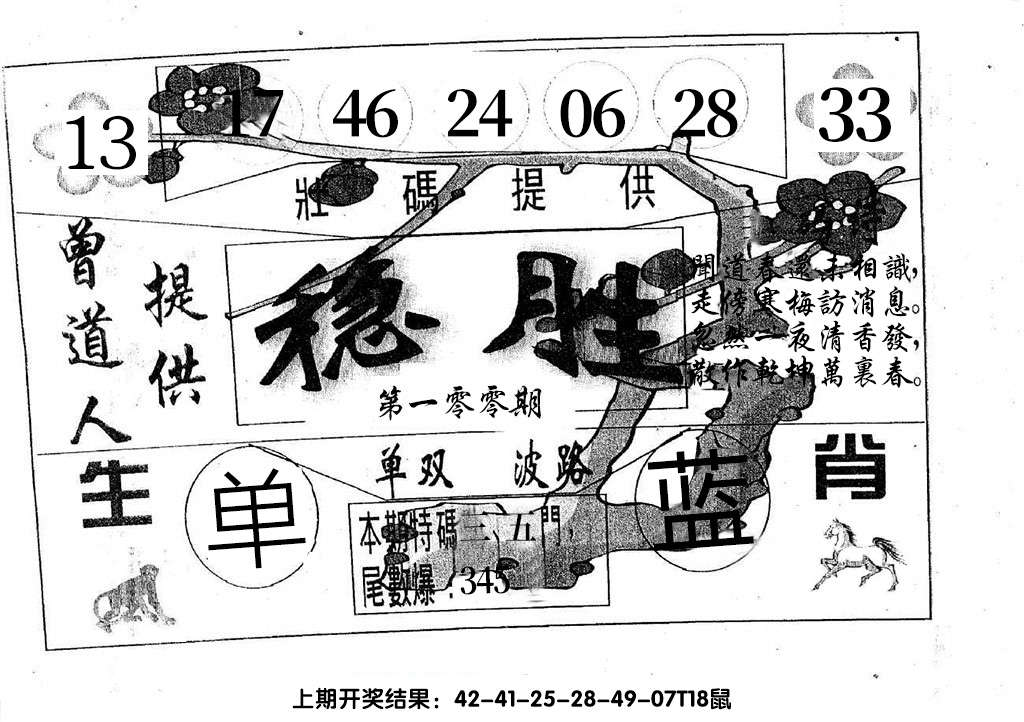 13 17 46 24 06 28 33
壯碼提供
特
曾道人
提供
稳胜
聞道春還未相識，
走傍寒梅訪消息。
忽然一夜清香發，
散作乾坤萬裏春。
第一零零期
单双 波路
生肖
单
蓝
本期特碼三、五門，
尾數爆：345
上期开奖结果：42-41-25-28-49-07T18鼠